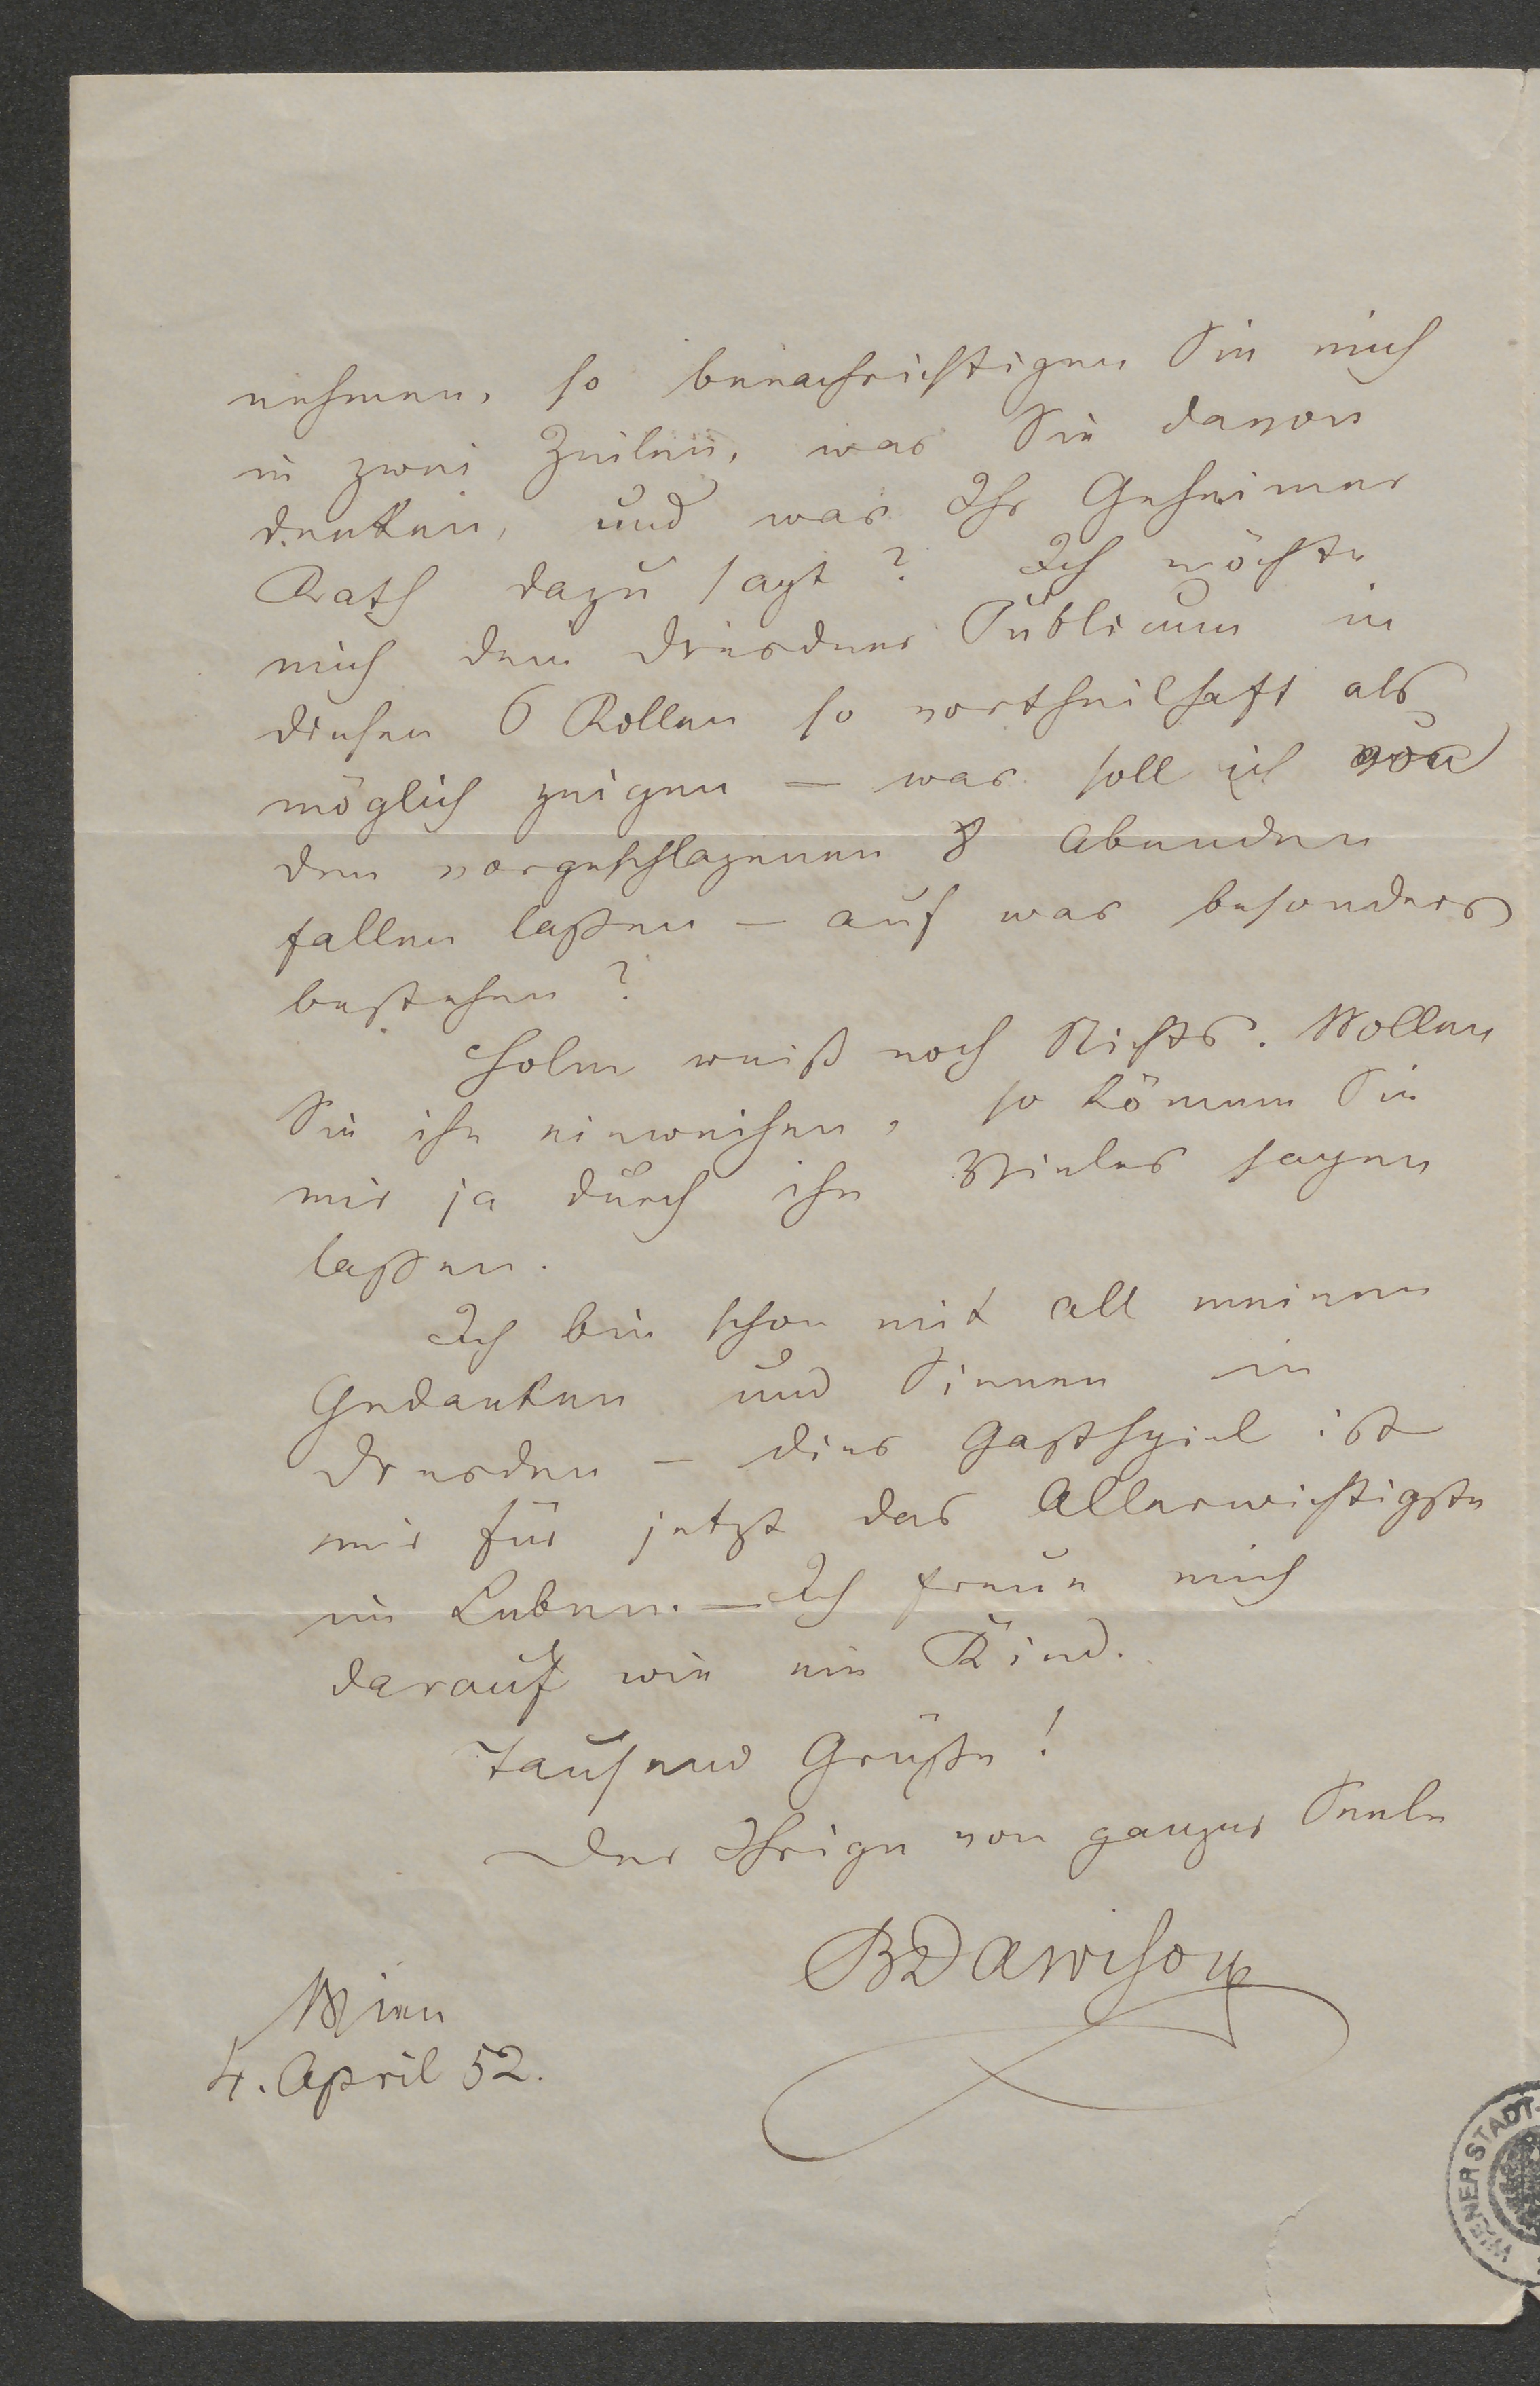 nehmen, so benachrichtigen Sie mich
in zwei Zeilen, was Sie davon
denken, und was Ihr Geheimer
Rath dazu sagt? Ich möchte
mich dem Dresdner Publicum in
diesen 6 Rollen so vortheilhaft als
möglich zeigen — was soll ich von
den vorgeschlagenen 8 Abenden
fallen laßen — auf was besonders
bestehen?
Holm weiß noch Nichts. Wollen
Sie ihn einweihen, so können Sie
mir ja durch ihn Vieles sagen
laßen.
Ich bin schon mit all meinen
Gedanken und Sinnen in
Dresden — dies Gastspiel ist
mir für jetzt das Allerwichtigste
im Leben. — Ich freue mich
darauf wie ein Kind.
Tausend Grüße!
Der Ihrige von ganzer Seele
BDawison
Wien
4. April 52.
WIENER STADT-